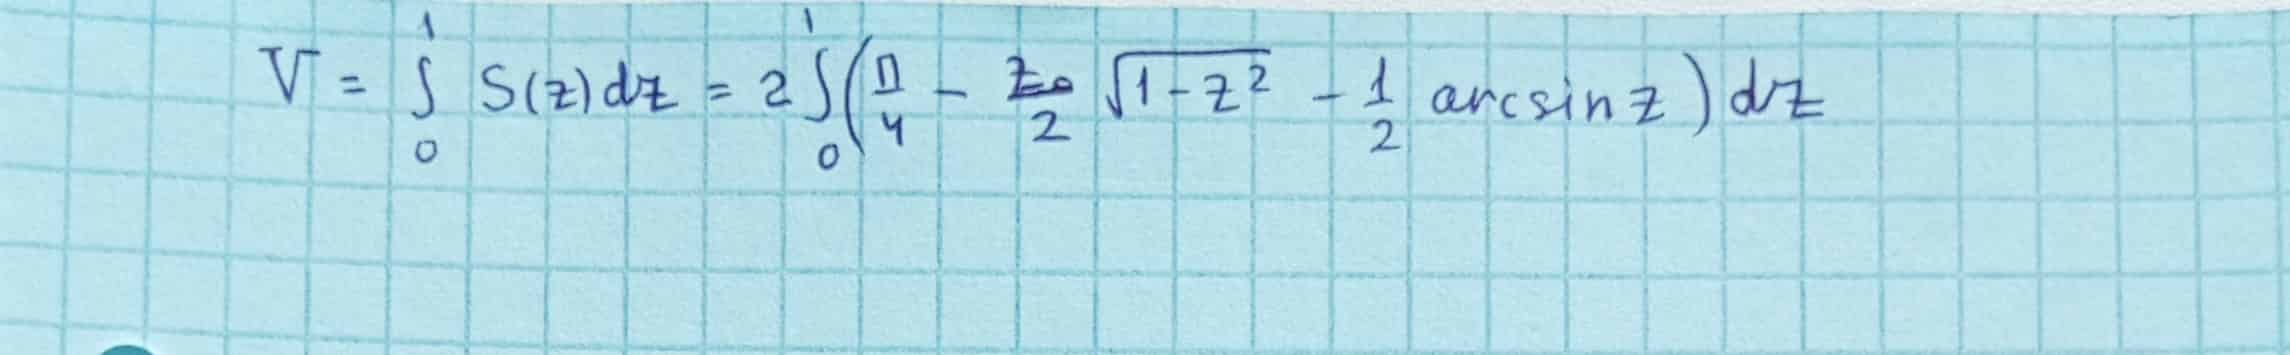 V = ∫₀¹ S(z)dz = 2 ∫₀¹ (π/4 − z₀/2 √(1−z²) − 1/2 arcsin z) dz